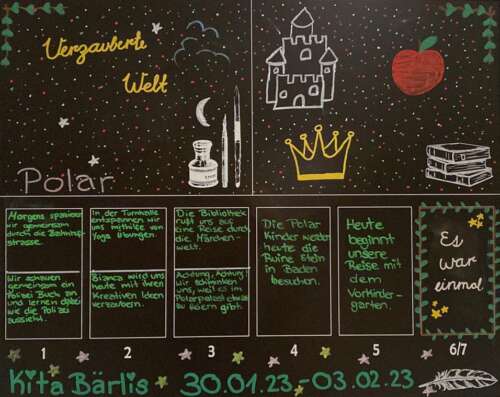 Verzauberte
Welt
Polar
Morgens spazieren
wir gemeinsam
durch die Bahnhof-
strasse.
Wir schauen
gemeinsam ein
Polizei Buch an
und lernen dabei
wie die Polizei
aussieht.
In der Turnhalle
entspannen wir
uns mithilfe von
Yoga Übungen.
Bianca wird uns
heute mit ihren
Kreativen Ideen
verzaubern.
Die Bibliothek
ruft uns auf
eine Reise durch
die Märchen-
welt.
Achtung, Achtung!
wir schminken
uns, weil es im
Polarpalast etwas
zu feiern gibt.
Die Polar
Kinder werden
heute die
Ruine Stein
in Baden
besuchen.
Heute
beginnt
unsere
Reise mit
dem
Vorkinder-
garten.
Es
war
einmal
1 2 3 4 5 6/7
Kita Bärlis 30.01.23 - 03.02.23